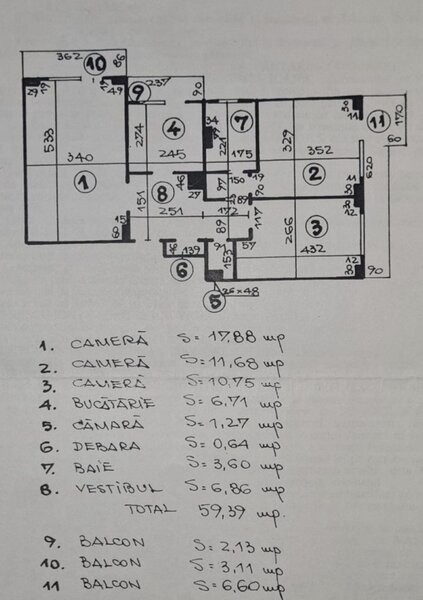 362
86
10
29
19
19
49
9
237
90
533
274
4
34
7
221
329
30
11
11
170
60
340
245
175
352
620
1
8
46
27
97
150
19
90
2
11
30
151
251
172
23
89
117
30
12
15
60
89
266
3
46
139
91
153
57
432
12
30
90
6
5
26×48
1. CAMERĂ S= 17,88 mp
2. CAMERĂ S= 11,68 mp
3. CAMERĂ S= 10,75 mp
4. BUCĂTĂRIE S= 6,71 mp
5. CĂMARĂ S= 1,27 mp
6. DEBARA S= 0,64 mp
7. BAIE S= 3,60 mp
8. VESTIBUL S= 6,86 mp
TOTAL 59,39 mp.
9. BALCON S= 2,13 mp
10. BALCON S= 3,11 mp
11 BALCON S= 6,60 mp